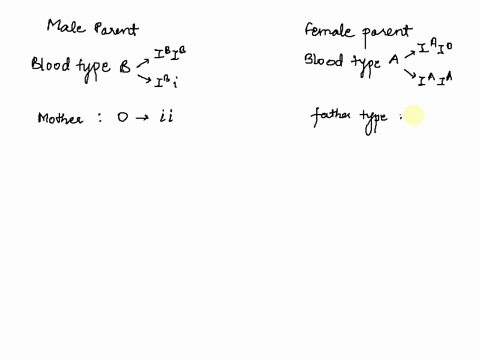 Male Parent
Blood type B → I^B I^B
→ I^B i
Mother : O → ii
female parent
Blood type A → I^A I^O
→ I^A I^A
father type :